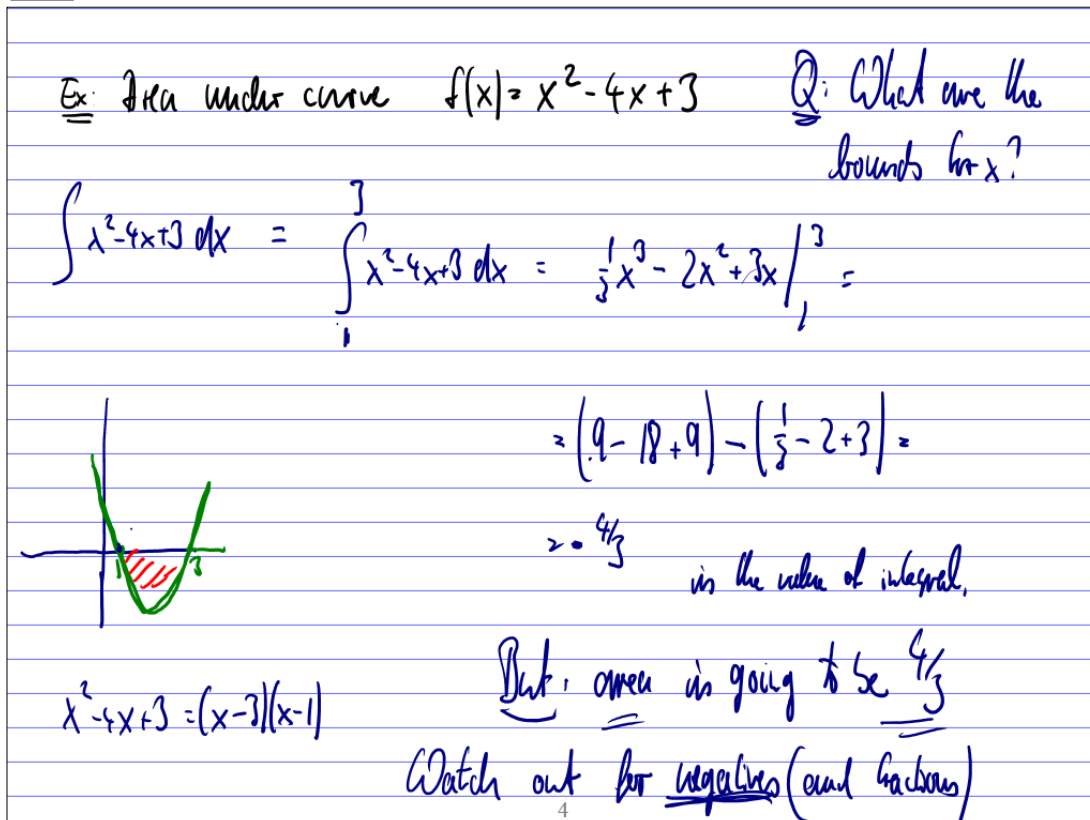 Ex: Area under curve f(x) = x² - 4x + 3 Q: What are the
bounds for x?
∫ x²-4x+3 dx = ∫₁³ x²-4x+3 dx = 1/3 x³ - 2x² + 3x |₁³ =
= (9 - 18 + 9) - (1/3 - 2 + 3) =
= - 4/3
is the value of integral.
1 3
But: area is going to be 4/3
x²-4x+3 = (x-3)(x-1)
Watch out for negatives (and fractions)
4